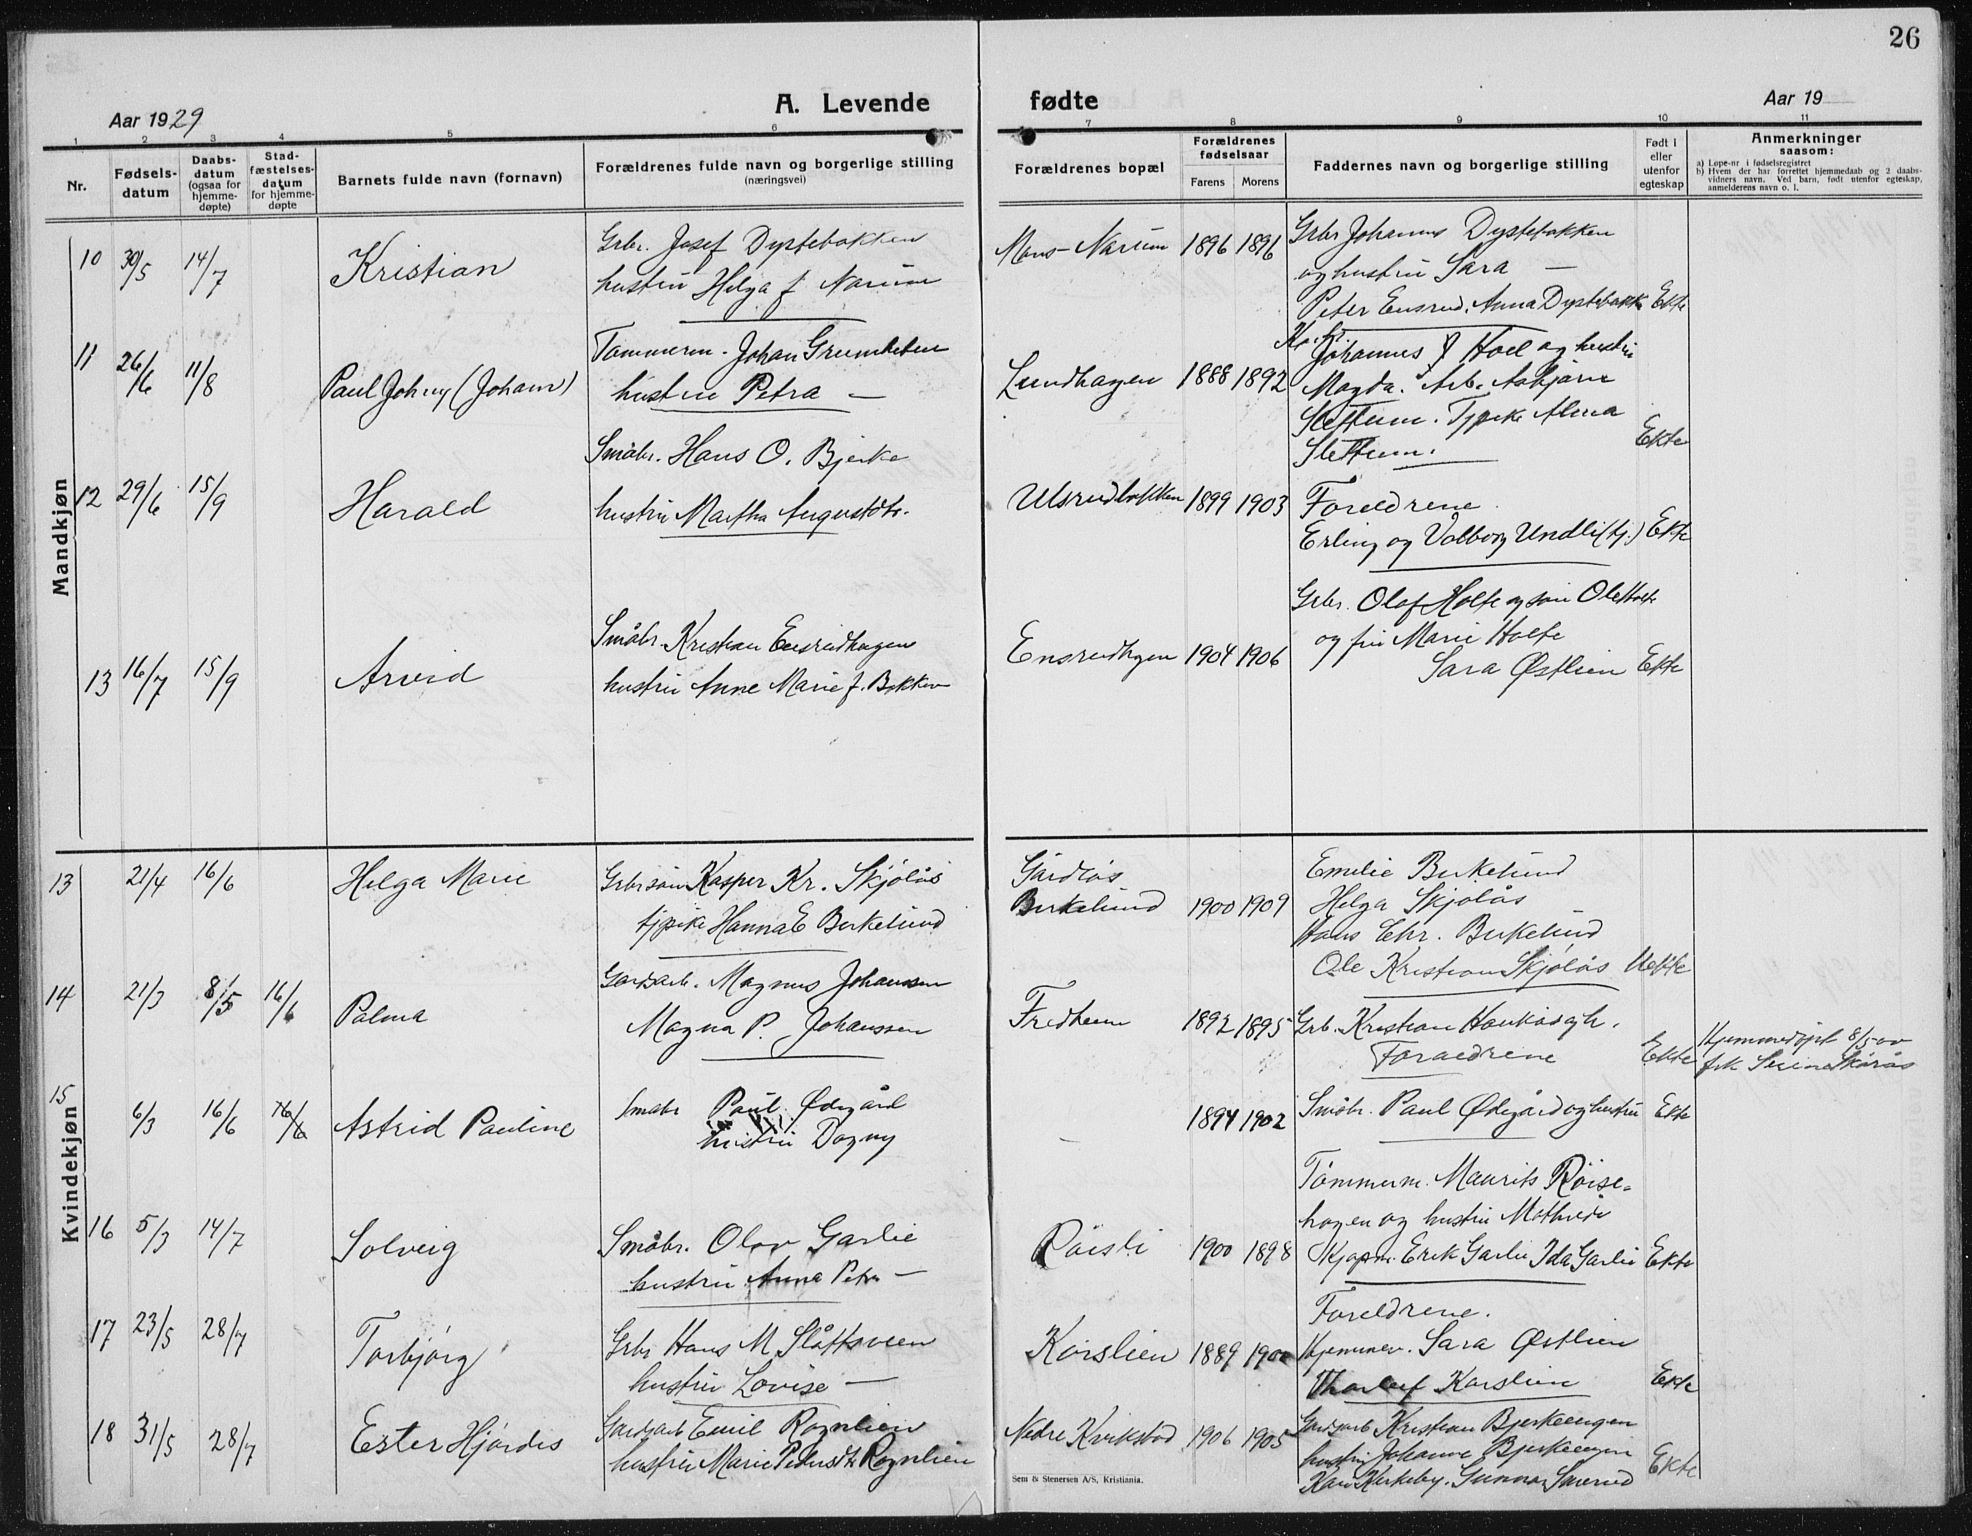 26
Aar 1929
A. Levende fødte
Aar 19
1 2 3 4 5 6 7 8 9 10 11
Nr.
Fødsels-
datum
Daabs-
datum
(ogsaa for
hjemme-
døpte)
Stad-
fæstelses-
datum
for hjemme-
døpte
Barnets fulde navn (fornavn)
Forældrenes fulde navn og borgerlige stilling
(næringsvei)
Forældrenes bopæl
Forældrenes
fødselsaar
Farens Morens
Faddernes navn og borgerlige stilling
Født i
eller
utenfor
egteskap
Anmerkninger
saasom:
a) Løpe-nr i fødselsregistret
b) Hvem der har forrettet hjemmedaab og 2 daabs-
vidners navn. Ved barn, født utenfor egteskap,
anmelderens navn o. l.
Mandkjøn
10 30/5 14/7 Kristian
Grbr. Josef Dystebakken
hustru Helga f. Narum
Narum 1896 1896
Grbr Johannes Dystebakken
og hustru Sara —
Peter Ensrud. Anna Dystebakk Ekte
11 26/6 11/8 Paul Johny (Johann)
Tømmerm. Johan Grumheten
hustru Petra —
Lundhagen 1888 1892
Johannes Hoel og hustru
Magda. Arb. Asbjørn
Slettum. Tjpike Alma
Slettum. Ekte
12 29/6 15/9 Harald
Småbr. Hans O. Bjerke
hustru Martha Augustdtr.
Ulsrudbakken 1899 1903
Foreldrene
Erling og Valborg Undli (tj.) Ekte
13 16/7 15/9 Arvid
Småbr. Kristian Ensrudhagen
hustru Anne Marie f. Bakken
Ensrudhgen 1904 1906
Grbr. Olaf Holte og søn Ole Holte
og fru Marie Holte
Sara Østlien Ekte
Kvindekjøn
13 21/4 16/6 Helga Marie
Grbrsøn Kasper Kr. Skjölås
tjpike Hanna E Birkelund
Gårdløs
Birkelund 1900 1909
Emilie Birkelund
Helga Skjolås
Hans Chr. Birkelund
Ole Kristian Skjölås Uekte
14 21/3 8/5 16/6 Palma
Gardsarb. Magnus Johansen
Magna P. Johanssen
Fredheim 1892 1895
Grb. Kristian Haukåsgh.
Foraeldrene Ekte
Hjemmedøpt 8/5 av
frk Skårås
15 6/3 16/6 16/6 Astrid Pauline
Smabr Paul Ødegård
hustru Dagny
— 1894 1902
Småbr. Paul Ødegård og hustru Ekte
16 5/3 14/7 Solveig
Småbr. Olav Garlie
hustru Anna Petra —
Röisli 1900 1898
Tömmerm. Maurits Röise-
hagen og hustru Mathilde
Kjøpm. Erik Garlie Ida Garlie Ekte
17 23/5 28/7 Torbjörg
Grbr Hans M. Slåttsveen
hustru Lovise —
Korslien 1889 1900
Foreldrene.
Hjemmev. Sara Østlien
Thorleif Korslien Ekte
18 31/5 28/7 Ester Hjördis
Gardsarb Emil Rognlien
hustru Marie Pedersdt Rognlien
Nedre Kvikstad 1906 1905
Gardsarb Kristian Bjerkeengen
hustru Johanne Bjerkeengen
Kari Kirkeby. Gunnar Ekte
Sem & Stenersen A/S, Kristiania.